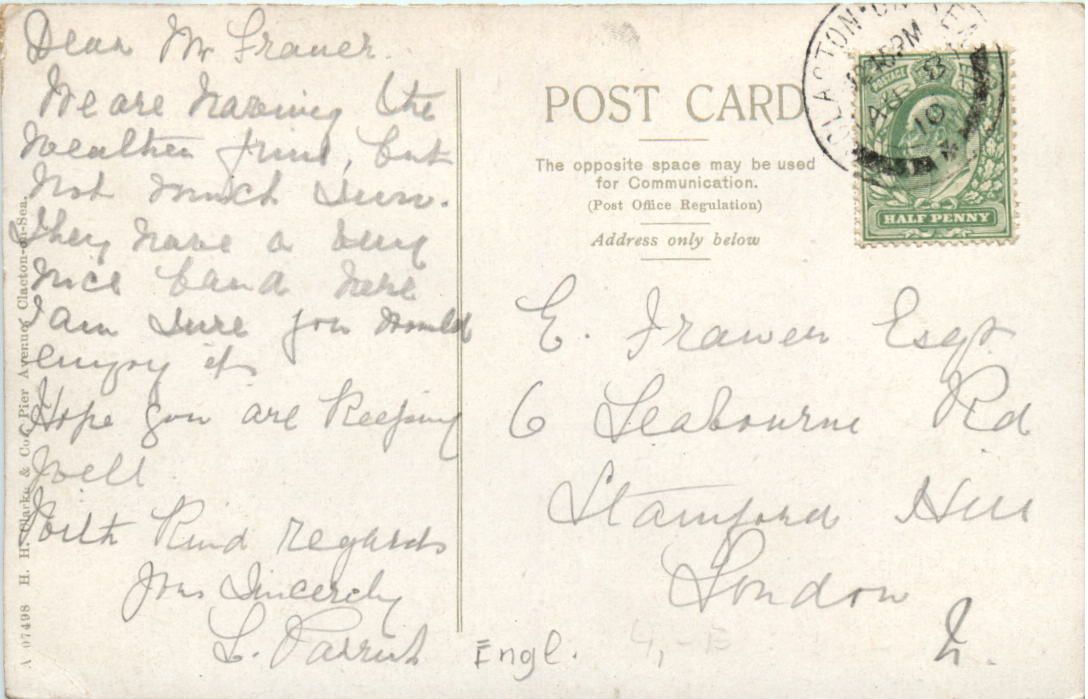 Dear Mr Frauer.
We are having the
weather fine, but
not much sun.
They have a very
nice band here
I am sure you would
enjoy it
Hope you are keeping
well
With kind regards
yours Sincerely
L. Parrish
A 07498 H. H. Clarke & Co., Pier Avenue, Clacton-on-Sea.
POST CARD
The opposite space may be used
for Communication.
(Post Office Regulation)
Address only below
CLACTON-ON-SEA
PM
AU 8
10
POSTAGE
HALF PENNY
E. Frauer Esq
6 Seabourne Rd
Stamford Hill
London
N.
Engl.